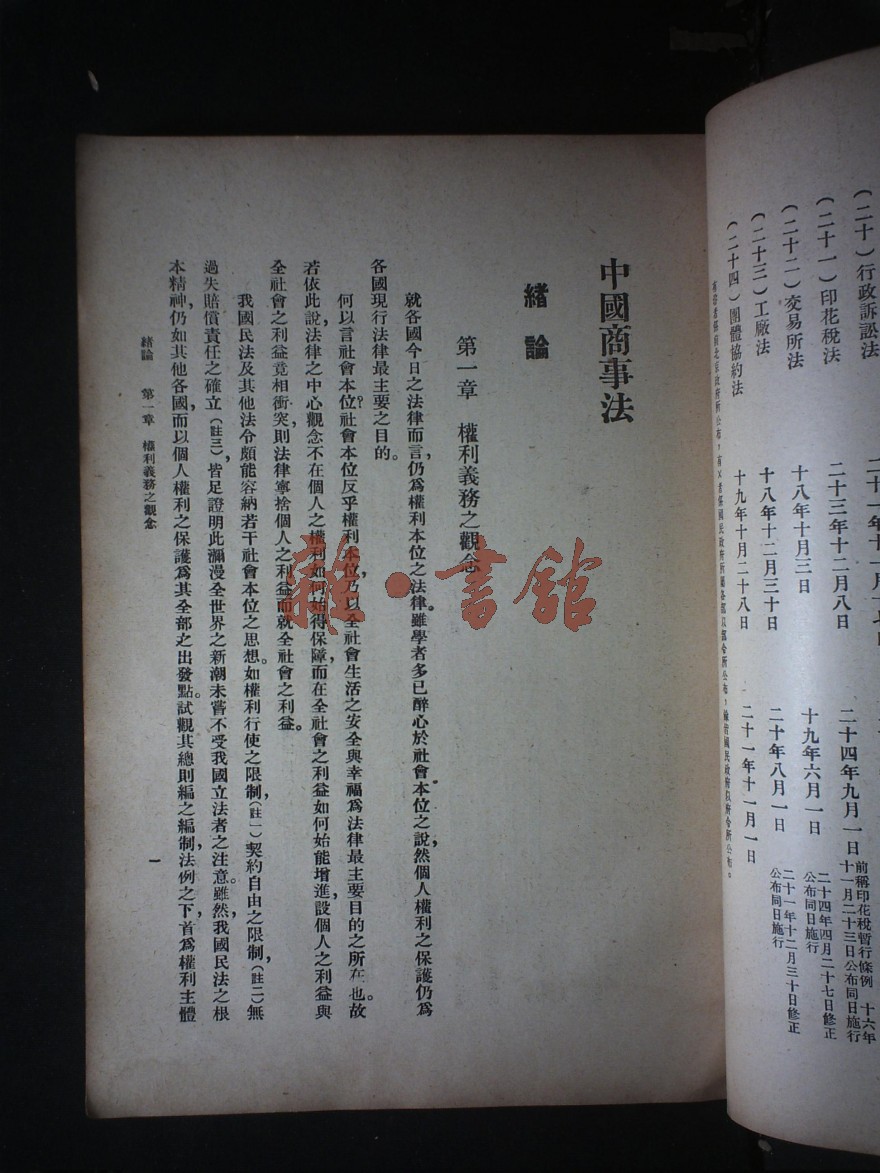 (二十)行政訴訟法
(二十一)印花税法
二十三年十二月八日
二十四年九月一日
前稱印花稅暫行條例 十六年
十一月二十三日公布同日施行
(二十二)交易所法
十八年十月三日
十九年六月一日
二十四年四月二十七日修正
公布同日施行
(二十三)工廠法
十八年十二月三十日
二十年八月一日
二十一年十二月三十日修正
公布同日施行
(二十四)團體協約法
十九年十月二十八日
二十一年十一月一日
中國商事法
緒論
第一章 權利義務之觀念
就各國今日之法律而言,仍爲權利本位之法律。雖學者多已醉心於社會本位之說,然個人權利之保護仍爲
各國現行法律最主要之目的。
何以言社會本位?社會本位反乎權利本位,乃以全社會生活之安全與幸福爲法律最主要目的之所在也。故
若依此說,法律之中心觀念不在個人之權利如何始得保障,而在全社會之利益如何始能增進。設個人之利益與
全社會之利益竟相衝突,則法律寧捨個人之利益而就全社會之利益。
我國民法及其他法令頗能容納若干社會本位之思想。如權利行使之限制,(註一)契約自由之限制,(註二)無
過失賠償責任之確立,(註三)皆足證明此瀰漫全世界之新潮未嘗不受我國立法者之注意。雖然,我國民法之根
本精神,仍如其他各國,而以個人權利之保護爲其全部之出發點。試觀其總則編之編制,法例之下,首爲權利主體
緒論 第一章 權利義務之觀念
一
雜·書館